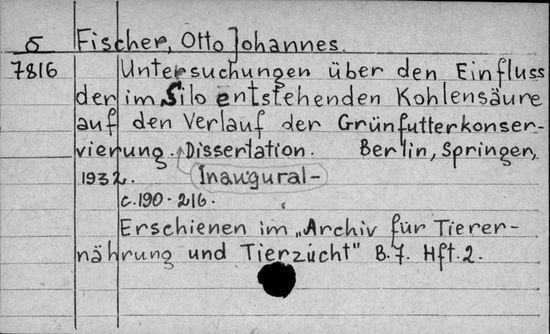 5 Fischer, Otto Johannes.
7816 Untersuchungen über den Einfluss
der im Silo entstehenden Kohlensäure
auf den Verlauf der Grünfutterkonser-
vierung. Dissertation. Berlin, Springer,
1932. Inaugural-
c. 190-216.
Erschienen im „Archiv für Tierer-
nährung und Tierzucht" B. 7. Hft. 2.